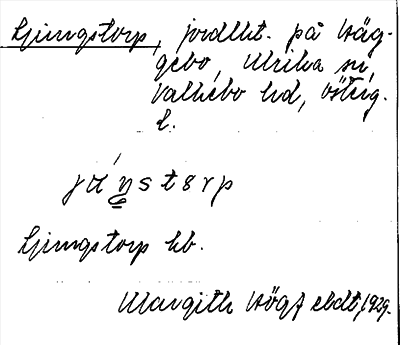 Ljungstorp, jordlht. på Häg-
gebo, Ulrika sn,
Valkebo hd, Österg.
l.
Ljungstorp hb.
Margith Högf eldt, 1929.